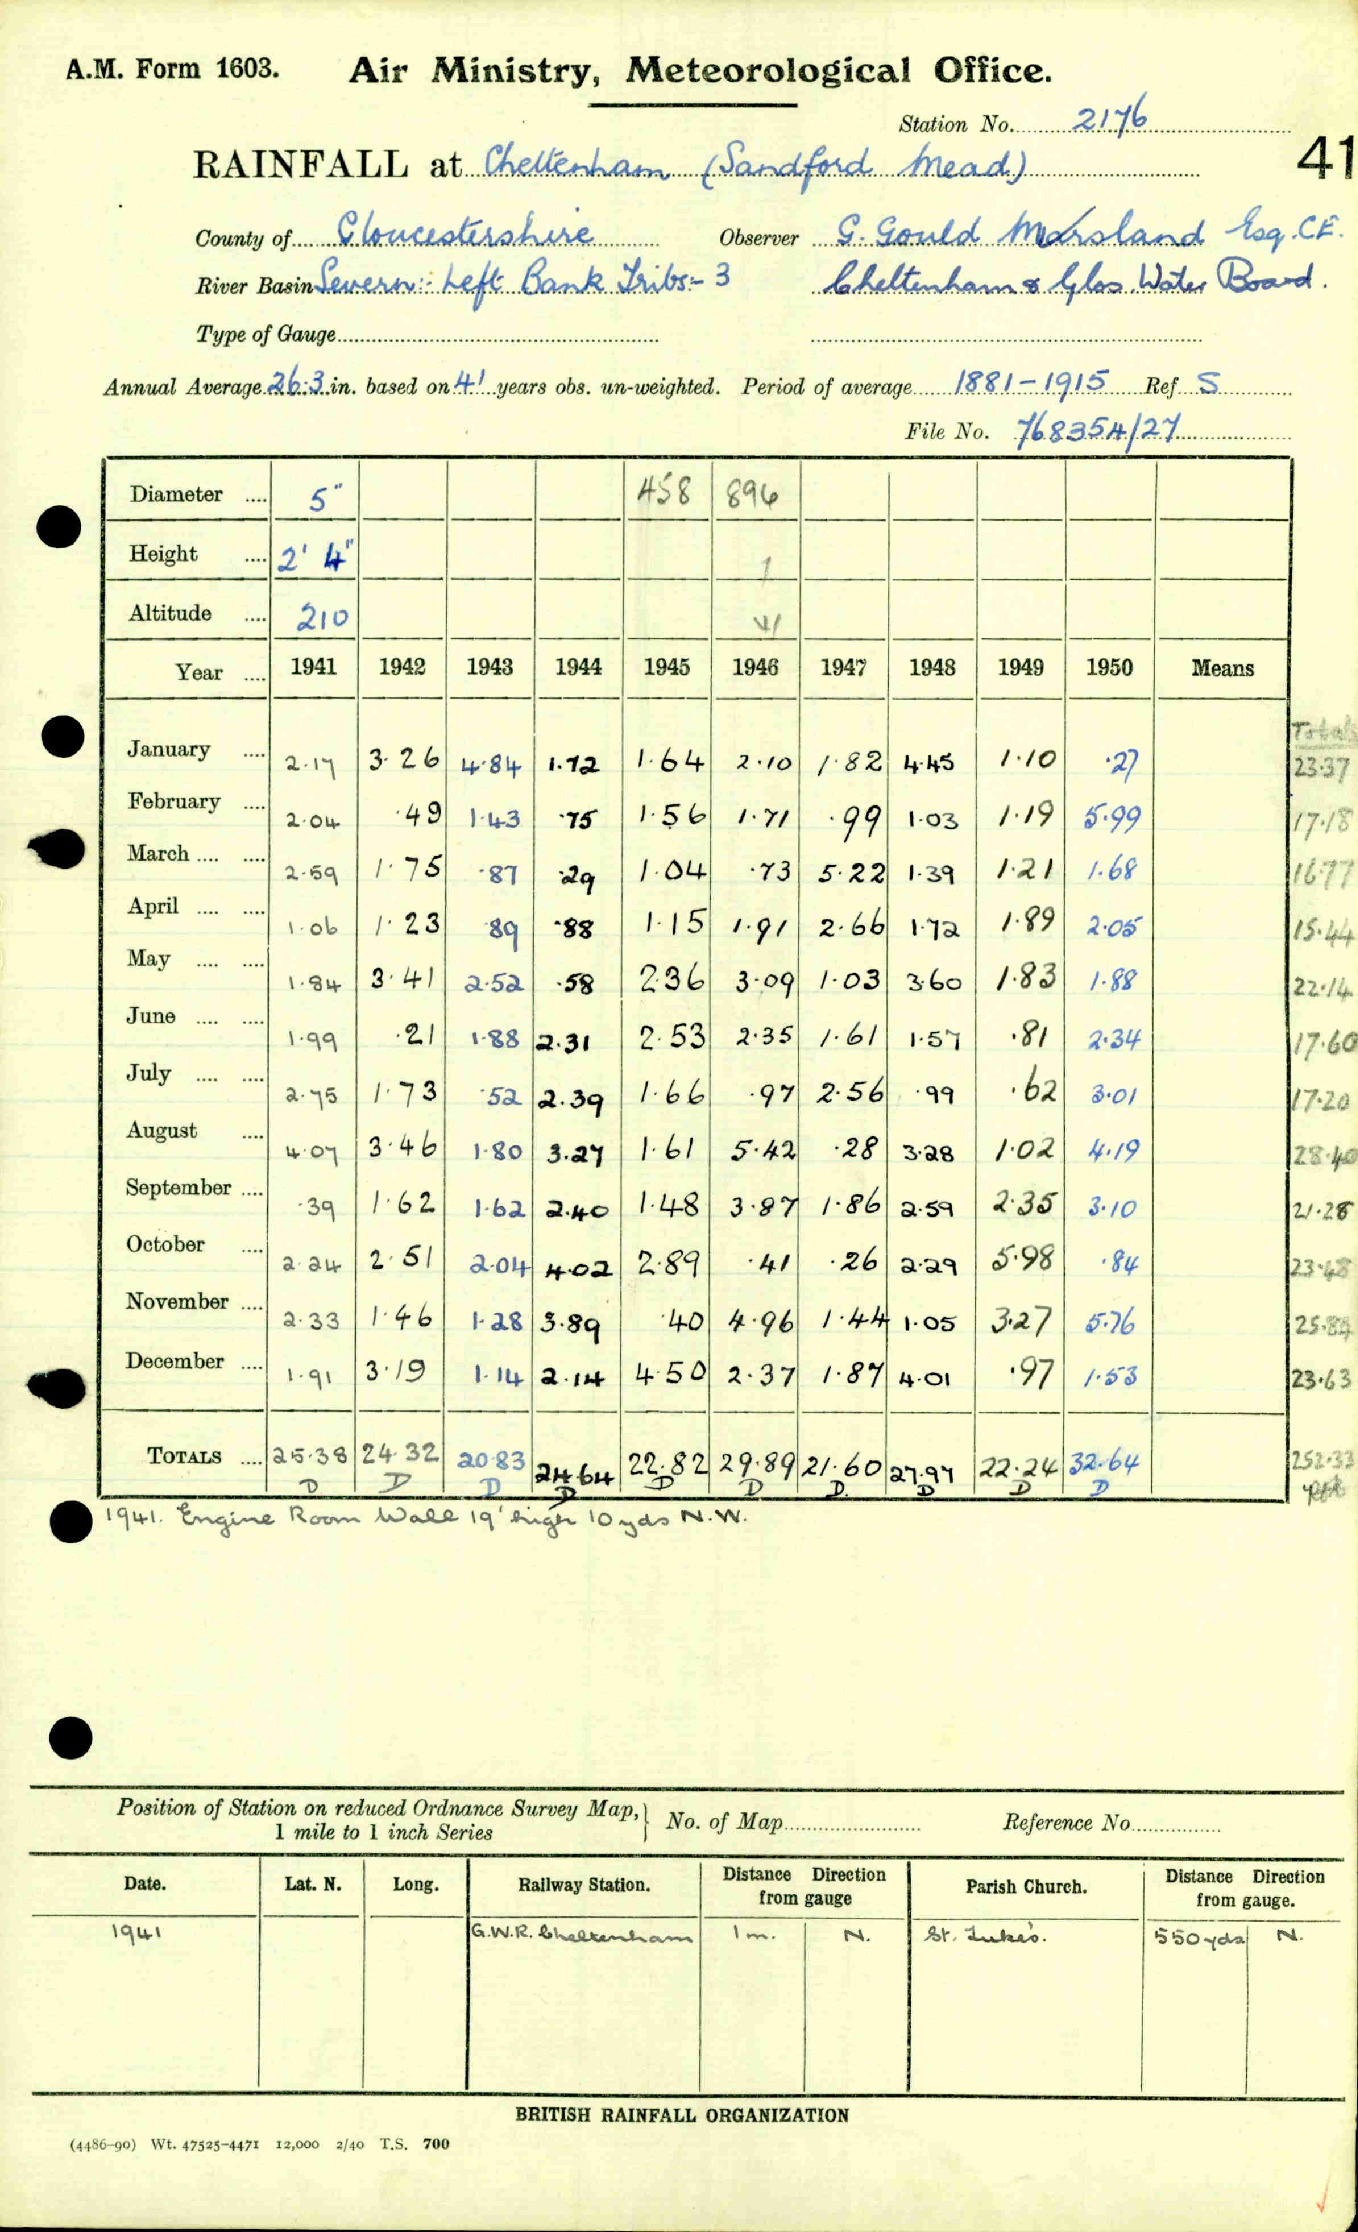 A.M. Form 1603. Air Ministry, Meteorological Office.
Station No. 2176
RAINFALL at Cheltenham (Sandford Mead) 41
County of Gloucestershire Observer G. Gould Marsland Esq. C.E.
River Basin Severn:- Left Bank Tribs:- 3 Cheltenham & Glos. Water Board.
Type of Gauge
Annual Average 26.3 in. based on 41 years obs. un-weighted. Period of average 1881-1915 Ref S
File No. 768354/27
Diameter .... 5" 458 896
Height .... 2' 4" 1
Altitude .... 210 41
Year .... 1941 1942 1943 1944 1945 1946 1947 1948 1949 1950 Means
Totals
January .... 2.17 3.26 4.84 1.72 1.64 2.10 1.82 4.45 1.10 .27 23.37
February .... 2.04 .49 1.43 .75 1.56 1.71 .99 1.03 1.19 5.99 17.18
March .... .... 2.59 1.75 .87 .29 1.04 .73 5.22 1.39 1.21 1.68 16.77
April .... .... 1.06 1.23 .89 .88 1.15 1.91 2.66 1.72 1.89 2.05 15.44
May .... .... 1.84 3.41 2.52 .58 2.36 3.09 1.03 3.60 1.83 1.88 22.14
June .... .... 1.99 .21 1.88 2.31 2.53 2.35 1.61 1.57 .81 2.34 17.60
July .... .... 2.75 1.73 .52 2.39 1.66 .97 2.56 .99 .62 3.01 17.20
August .... 4.07 3.46 1.80 3.27 1.61 5.42 .28 3.28 1.02 4.19 28.40
September .... .39 1.62 1.62 2.40 1.48 3.87 1.86 2.59 2.35 3.10 21.28
October .... 2.24 2.51 2.04 4.02 2.89 .41 .26 2.29 5.98 .84 23.48
November .... 2.33 1.46 1.28 3.89 .40 4.96 1.44 1.05 3.27 5.76 25.84
December .... 1.91 3.19 1.14 2.14 4.50 2.37 1.87 4.01 .97 1.53 23.63
TOTALS .... 25.38 24.32 20.83 24.64 22.82 29.89 21.60 27.97 22.24 32.64 252.33
D D D D D D D. D D D
1941. Engine Room Wall 19' high 10 yds N.W.
Position of Station on reduced Ordnance Survey Map, No. of Map Reference No.
1 mile to 1 inch Series
Date. Lat. N. Long. Railway Station. Distance Direction from gauge Parish Church. Distance Direction from gauge.
1941 G.W.R. Cheltenham 1 m. N. St. Luke's. 550 yds N.
BRITISH RAINFALL ORGANIZATION
(4486-90) Wt. 47525-4471 12,000 2/40 T.S. 700